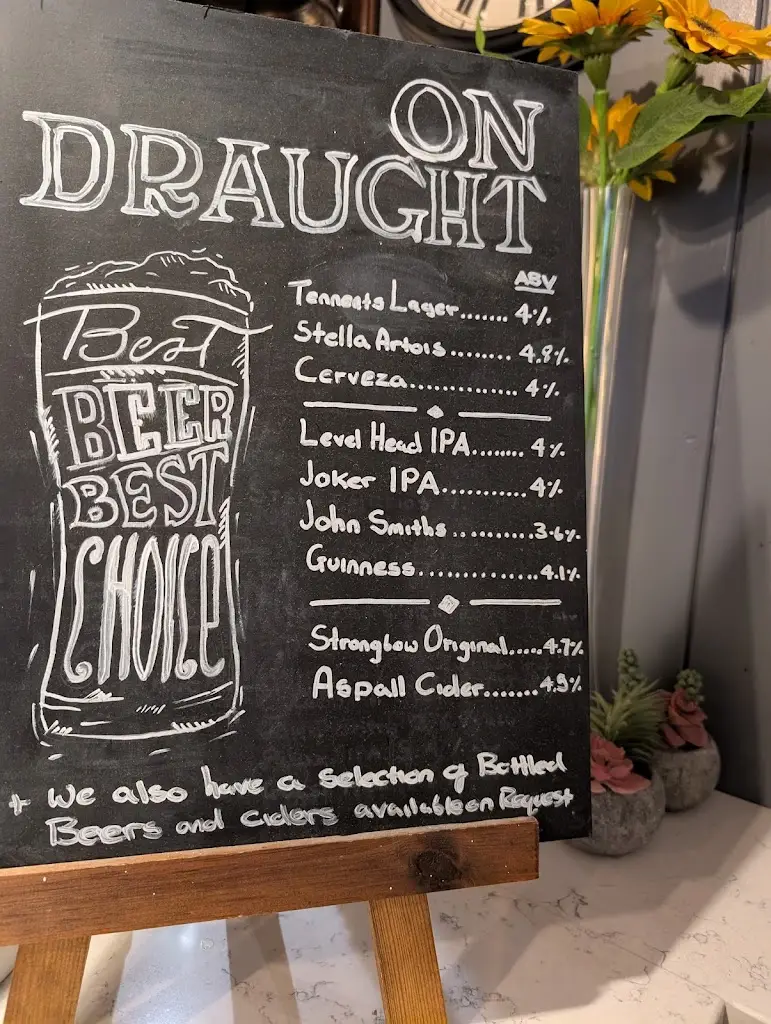 ON
DRAUGHT
ABV
Tennents Lager....... 4%
Stella Artois........ 4.8%
Cerveza.............. 4%
Level Head IPA........ 4%
Joker IPA........... 4%
John Smiths ..........3.6%
Guinness..............4.1%
Strongbow Original.....4.7%
Aspall Cider.......4.5%
Best
BEER
BEST
CHOICE
+ We also have a selection of Bottled
Beers and ciders available on Request